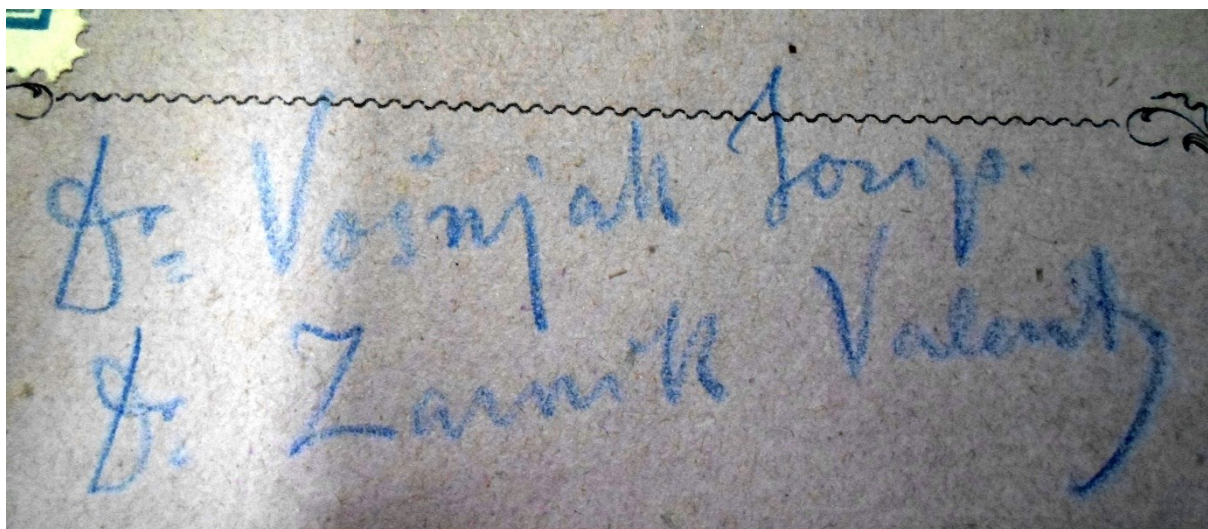 Dr. Vošnjak Josip.
Dr. Zarnik Valent